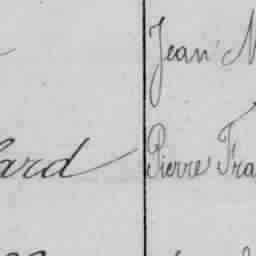 Jean M
ard Pierre Fra